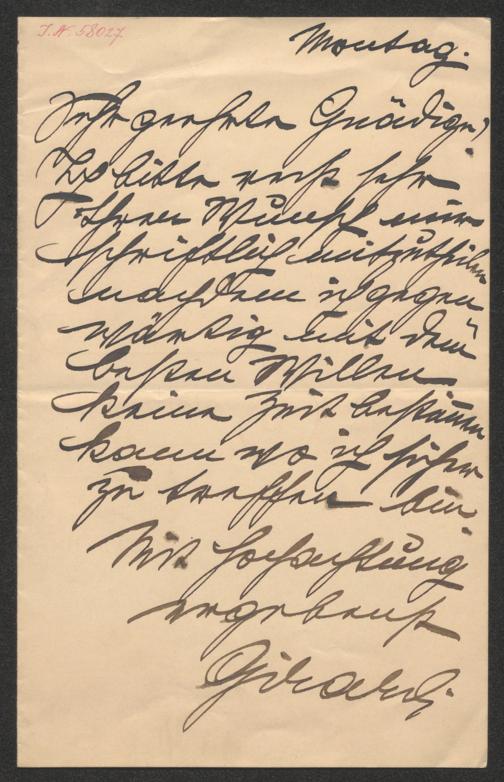 I.N. 58027
Montag.
Sehr geehrte Gnädige!
Ich bitte recht sehr
Ihren Wunsch mir
schriftlich mitzutheilen
nachdem ich gegen
wärtig mit dem
besten Willen
keine Zeit bestimmen
kann wo ich sicher
zu treffen bin.
Mit Hochachtung
ergebenst
Girardi